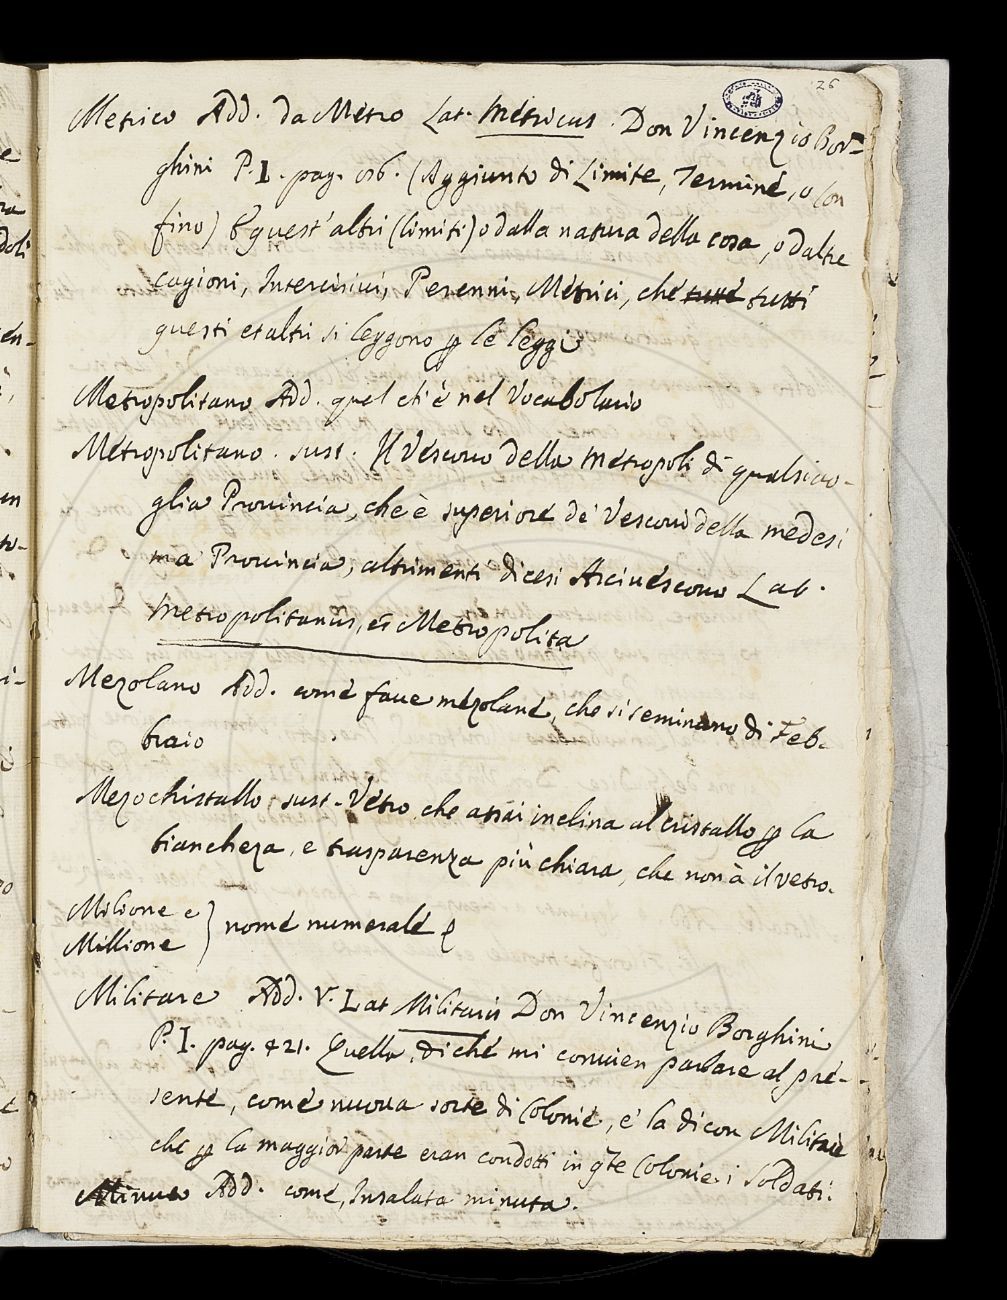 26
Metrico Add. da Metro Lat. Metricus. Don Vincenzio Bor=
ghini P. I. pag. (Aggiunto di Limite, Termine, o Con
fino) E quest'altri (limiti) o dalla natura della cosa, o d'altre
cagioni, Intercisivi, Perenni, Metrici, che tutte tutti
questi et altri si leggono p le leggi
Metropolitano Add. quel ch'è nel Vocabolario
Metropolitano. sust. Il Vescovo della Metropoli di qualsivo-
glia Provincia, che è superiore de' Vescovi della medesi
ma Provincia, altrimenti dicesi Arcivescovo Lat.
Metropolitanus, et Metropolita
Mezolano Add. come fave mezolane, che si seminano di Feb-
braio
Mezochistallo sust. Vetro, che assai inclina al cristallo p la
biancheza, e trasparenza più chiara, che non à il vetro.
Milione e
Millione } nome numerale
Militare Add. V. Lat Militaris Don Vincenzio Borghini
P. I. pag. 421. Quello, di che mi convien parlare al pre-
sente, come nuova sorte di Colonie, e la dicon Militare
che p la maggior parte eran condotti in qte Colonie i Soldati.
Minuto Add. come, Insalata minuta.